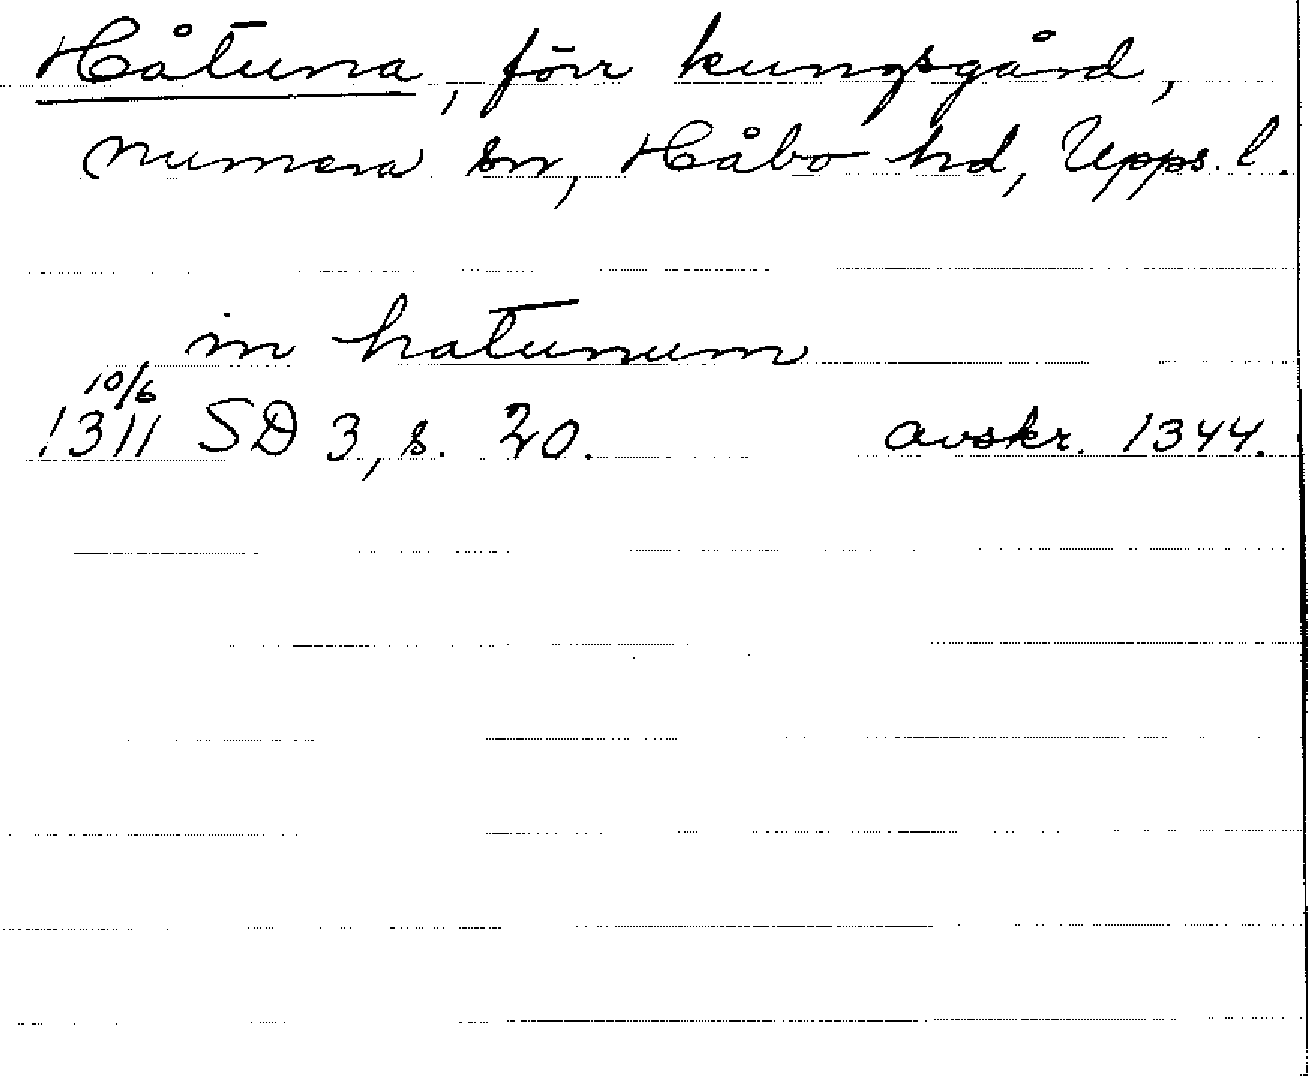 Håtuna, förr kungsgård,
numera sn, Håbo hd, Upps. l.
in hatunum
10/6
1311 SD 3, s. 20. avskr. 1344.